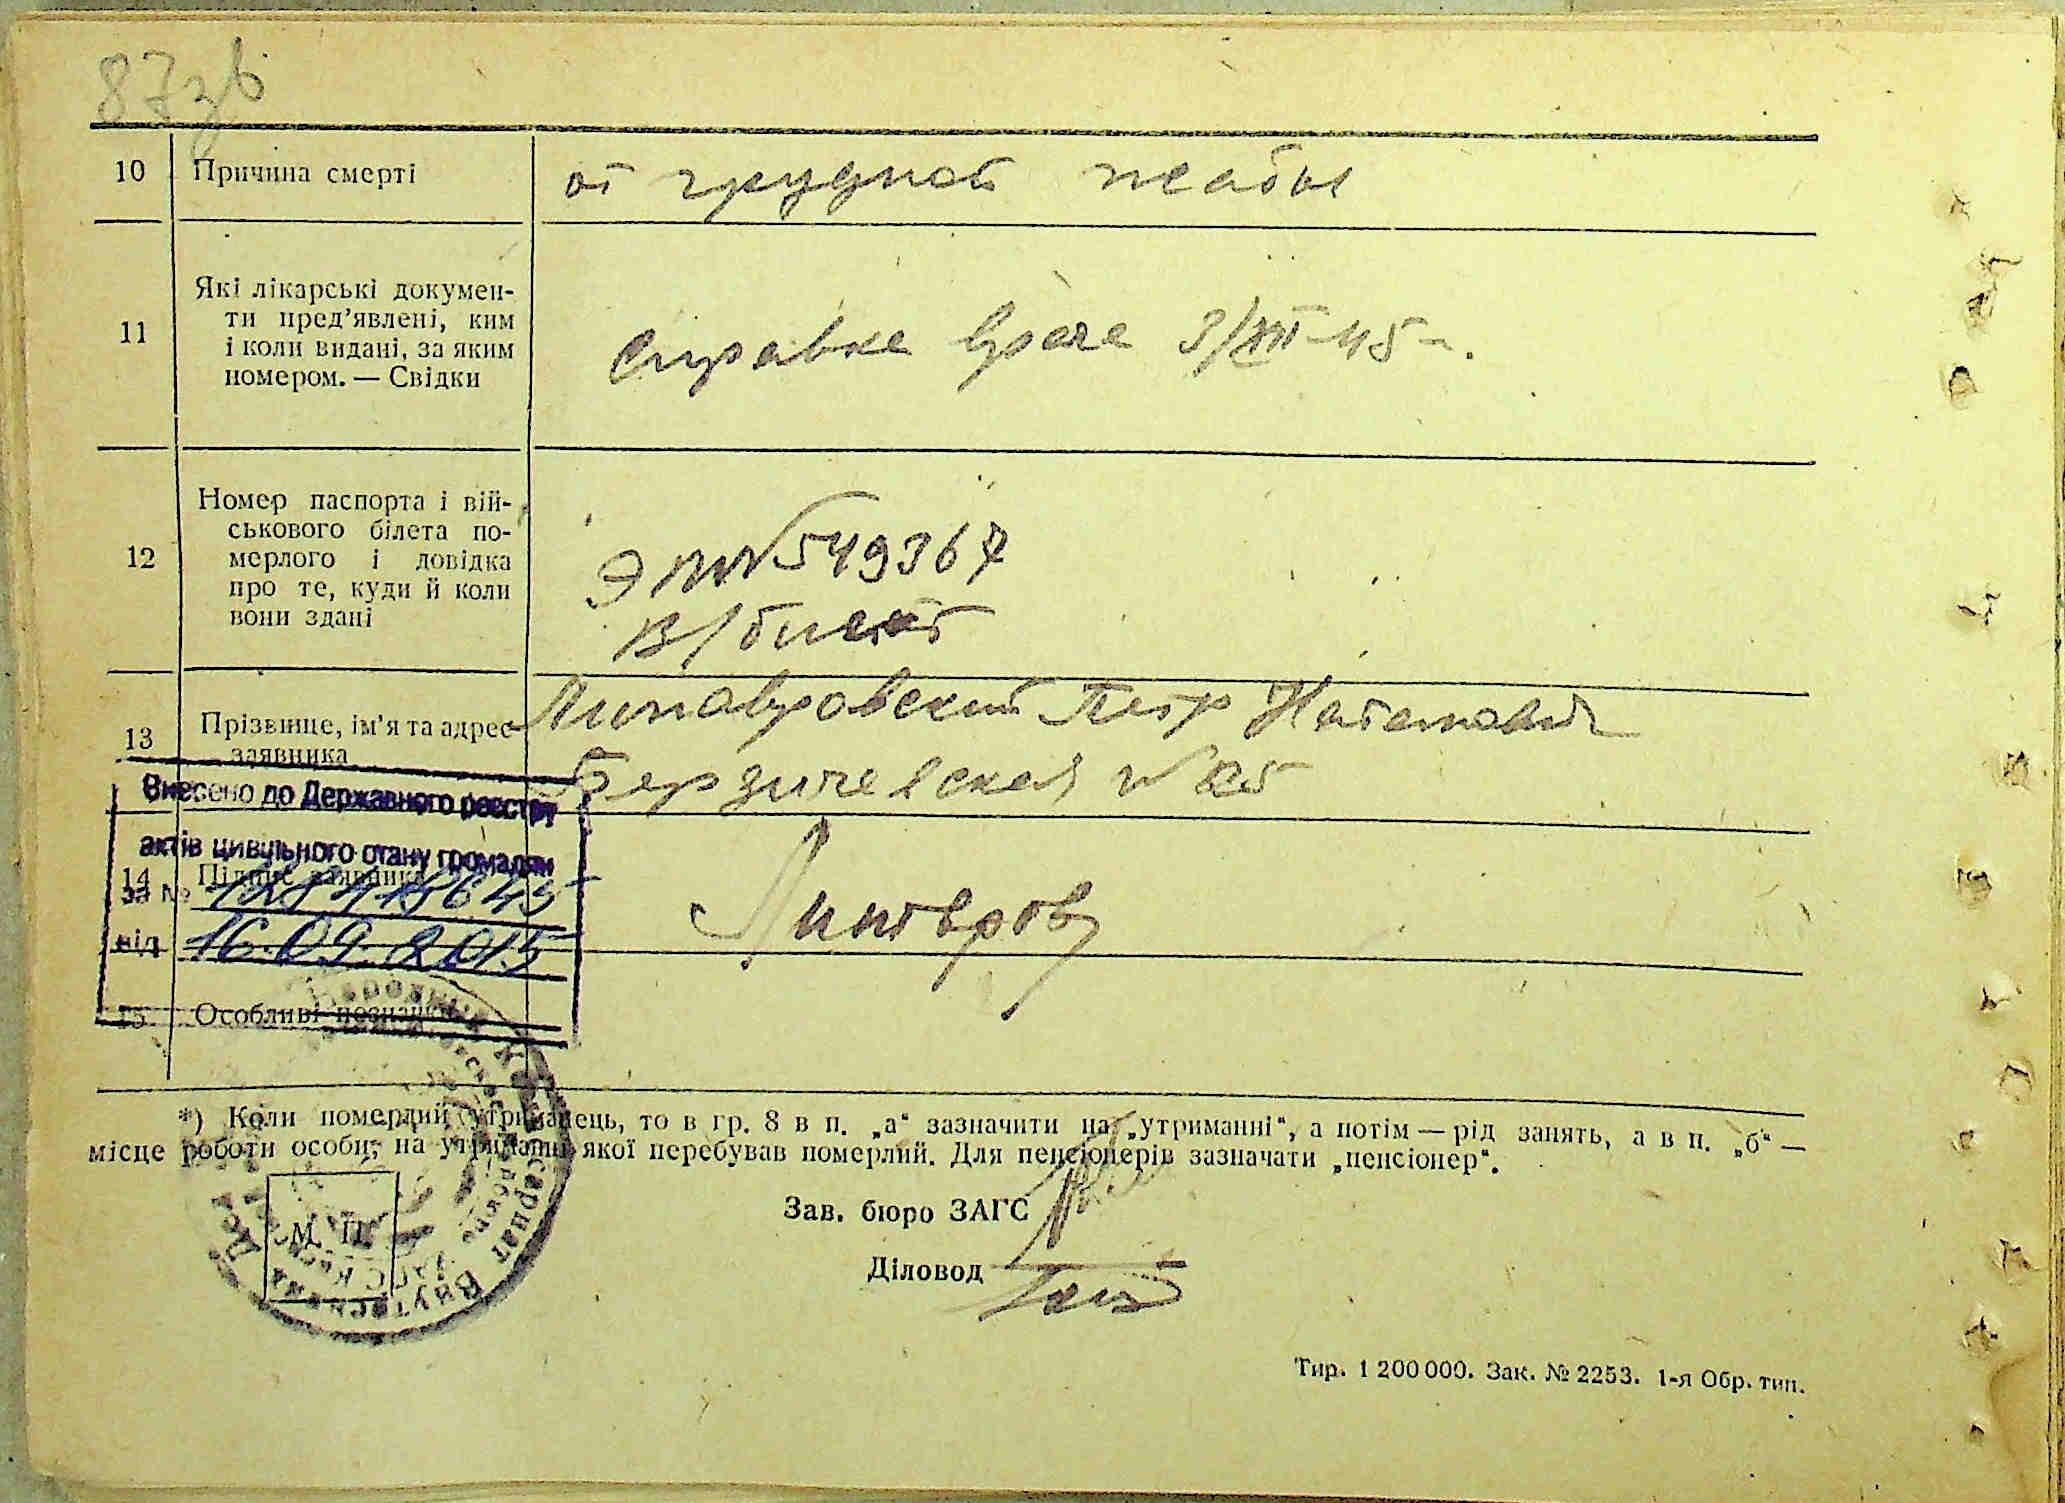 87зв
10 Причина смерті от грудной жабы
11 Які лікарські докумен-
ти пред’явлені, ким
і коли видані, за яким
номером. — Свідки
Справка врача 3/XII-45 г.
12 Номер паспорта і вій-
ськового білета по-
мерлого і довідка
про те, куди й коли
вони здані
№ 549367
В/билет
13 Прізвище, ім’я та адрес
заявника
Петр Натанович
Бердичевская №
Внесено до Державного реєстру
актів цивільного стану громадян
14 Підпис заявника
за №
від 16.09.2015
15 Особливі познаки
*) Коли померлий утриманець, то в гр. 8 в п. „а“ зазначити на „утриманні“, а потім — рід занять, а в п. „б“ —
місце роботи особи, на утриманні якої перебував померлий. Для пенсіонерів зазначати „пенсіонер“.
М. П.
Зав. бюро ЗАГС
Діловод
Тир. 1 200 000. Зак. № 2253. 1-я Обр. тип.